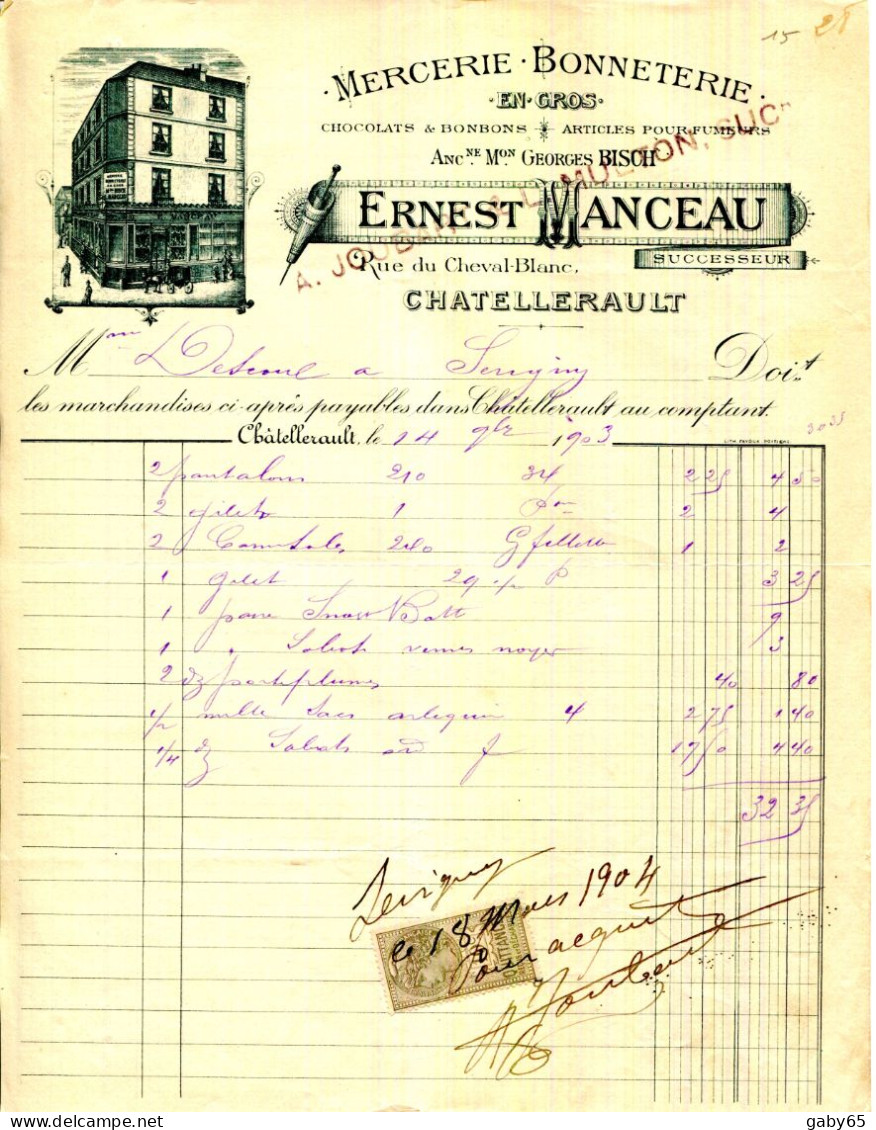 15 28
MERCERIE · BONNETERIE
· EN GROS ·
CHOCOLATS & BONBONS ARTICLES POUR FUMEURS
ANC.NE MON GEORGES BISCH
ERNEST MANCEAU
SUCCESSEUR
Rue du Cheval-Blanc,
CHATELLERAULT
Mme à Doit
les marchandises ci-après payables dans Châtellerault au comptant.
Châtellerault, le 14 9bre 1903
2 pantalons 210 34 2 25 4 50
2 gilets 1 2 4
2 240 1 2
1 gilet 29 P 3 25
1 paire 9
1 " Sabots vernis noyer 3
2 dz porteplumes 40 80
1/2 mille sacs arlequin 4 2 75 1 40
1/4 dz Sabots 17 50 4 40
32 35
le 18 Mars 1904
Pour acquit
A Joubert
gaby65